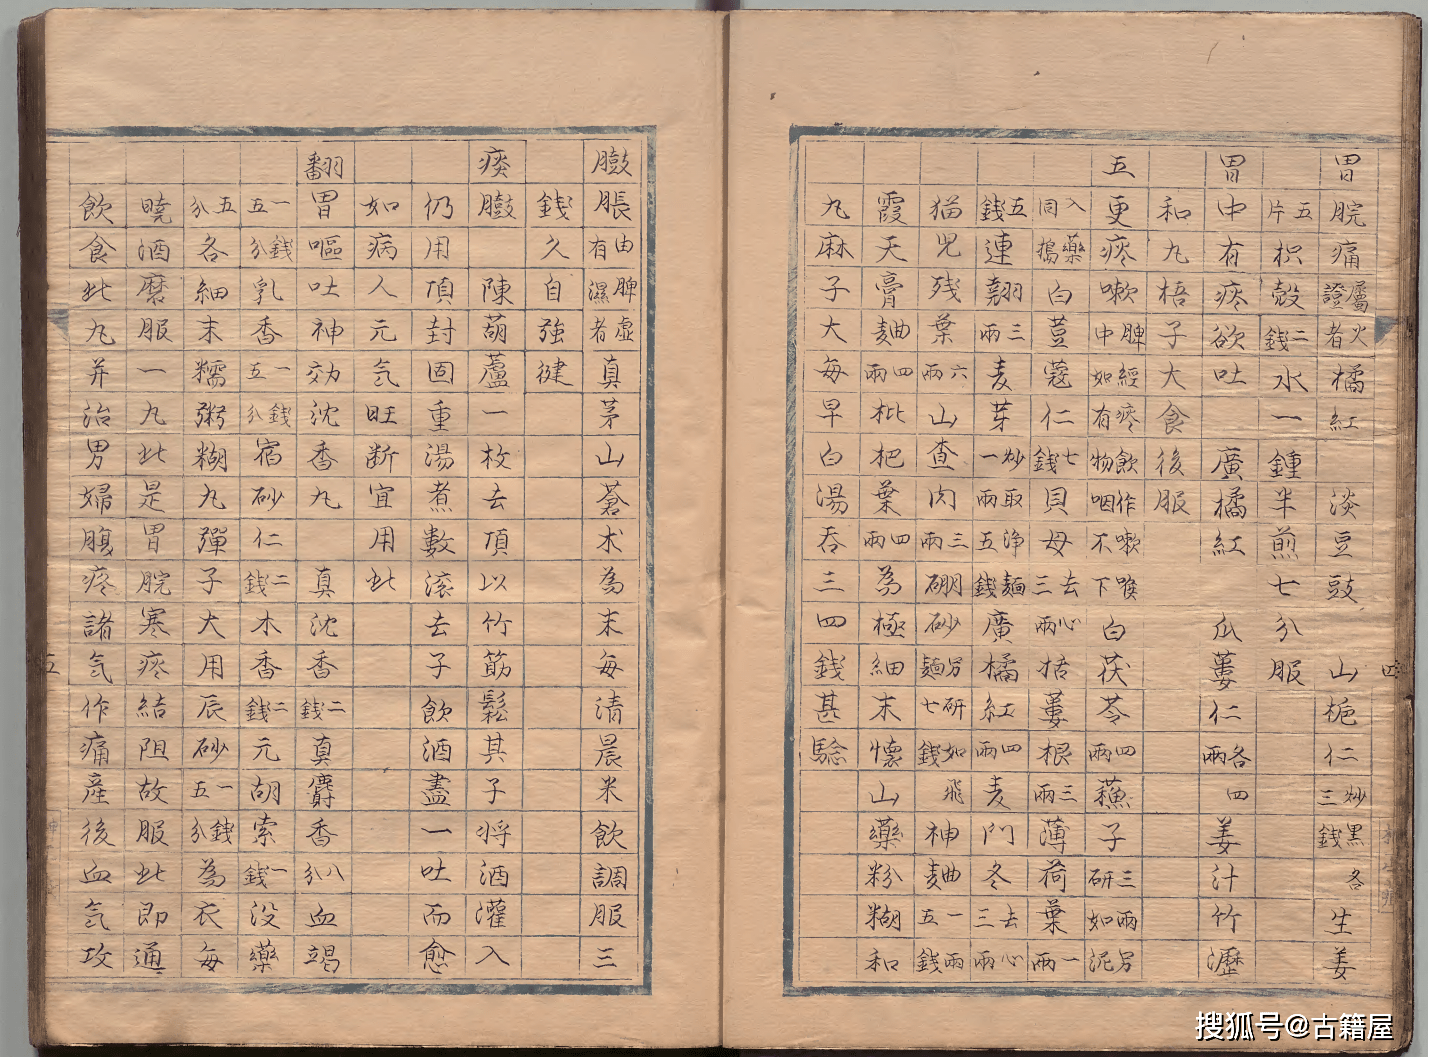 胃脘痛屬火證者橘紅 淡豆豉 山梔仁炒黑各三錢生姜
五片枳殼二錢水一鍾半煎七分服
胃中有疼欲吐 廣橘紅 瓜蔞仁各四兩姜汁竹瀝
和丸梧子大食後服
五更疼嗽脾經疼飲作嗽喉中如有物咽不下白茯苓四兩蘓子三兩另研如泥
入藥同搗白荳蔻仁七錢貝母去心三兩栝蔞根三兩薄荷葉一兩
五錢連翹三兩麦芽炒取淨麵一兩五錢廣橘紅四兩麦門冬去心三兩
猫児残葉六兩山查肉三兩硼砂另研如飛麵七錢神麯一兩五錢
霞天膏麯四兩枇杷葉四兩為極細末懷山藥粉糊和
丸麻子大每早白湯吞三四錢甚驗
四
臌脹由脾虛有濕者真茅山蒼术為末每清晨米飲調服三
錢久自強健
痰臌 陳葫蘆一枚去頂以竹筯鬆其子将酒灌入
仍用頂封固重湯煮數滚去子飲酒盡一吐而愈
如病人元氣旺断宜用此
翻胃嘔吐神効沈香丸 真沈香二錢真麝香八分血竭
一錢五分乳香一錢五分宿砂仁二錢木香二錢元胡索一錢没藥
五分各細末糯粥糊丸彈子大用辰砂一錢五分為衣每
曉酒磨服一丸此是胃脘寒疼結阻故服此即通
飲食此丸并治男婦腹疼諸氣作痛產後血氣攻
五
搜狐号@古籍屋